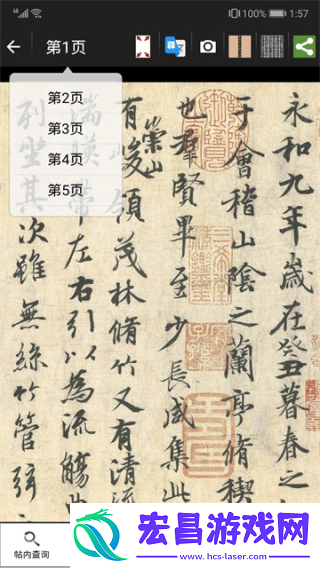 4G 100% 1:57
第1页
第2页
第3页
第4页
第5页
永和九年歲在癸丑暮春之
于會稽山陰之蘭亭脩稧
也羣賢畢至少長咸集此
有崇山峻領茂林脩竹又有清流
湍暎帶左右引以為流觴
列坐其次雖無絲竹管弦
帖内查询
宏昌游戏网
www.hcs-laser.com